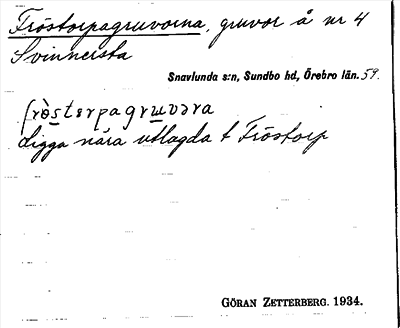 Fröstorpagruvorna, gruvor å nr 4
Svinnersta
Snavlunda s:n, Sundbo hd, Örebro län. 59.
fròstərpagrɯvəra
Ligga nära utlagda t Fröstorp
GÖRAN ZETTERBERG. 1934.